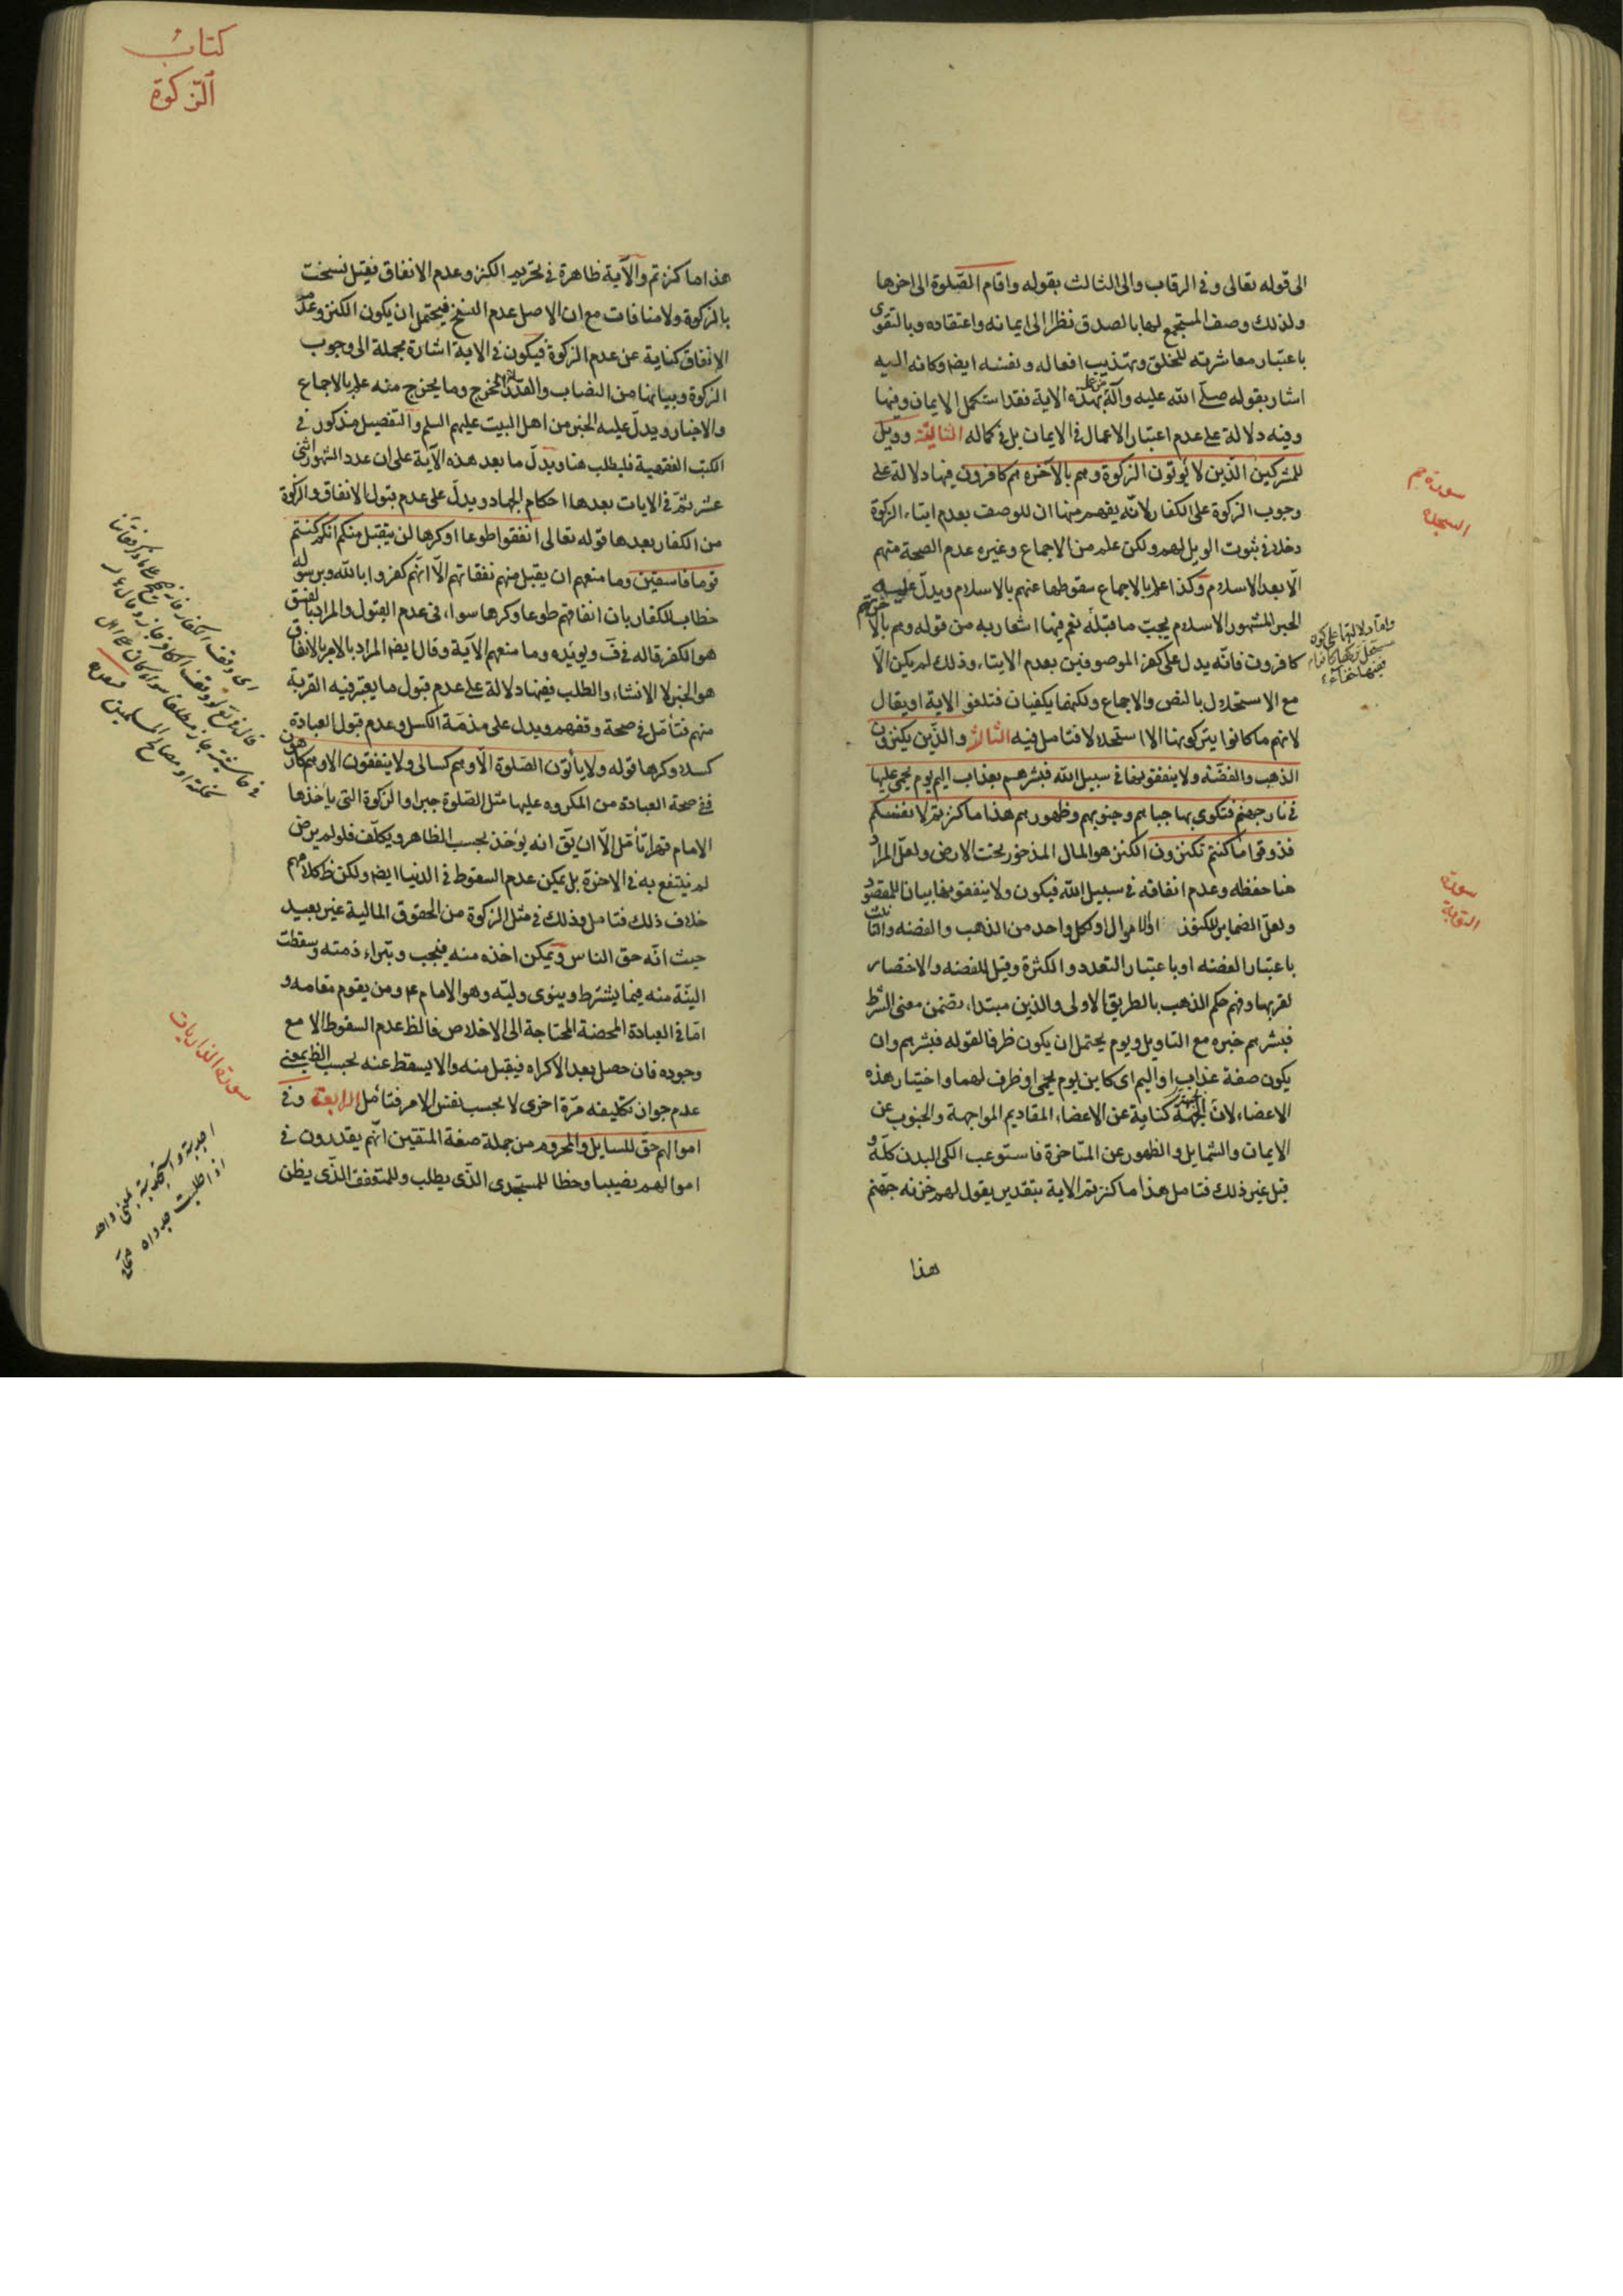 الى قوله تعالى وفى الرقاب والى الثالث بقوله واقام الصّلوة الى اخرها
ولذلك وصف المستجمع لها بالصدق نظرا الى ايمانه واعتقاده وبالتقوى
باعتبار معاشرته للخلق وتهذيب افعاله ونفسه ايضا وكانه اليه
اشار بقوله صلّى الله عليه وآله من عمل بهذه الاية فقد استكمل الايمان وفيها
وفيه دلالة على عدم اعتبار الاعمال فى الايمان بل فى كماله الثانية وويل
للمشركين الّذين لا يؤتون الزكوة وهم بالآخرة هم كافرون فيها دلالة على
وجوب الزكوة على الكفار لانّه يفهم منها ان للوصف بعدم ايتاء الزكوة
دخلا فى ثبوت الويل لهم ولكن علم من الاجماع وغيره عدم الصحة منهم
الّا بعد الاسلام وكذا علم بالاجماع سقوطها عنهم بالاسلام ويدلّ عليه
الخبر المشهور الاسلام يجبّ ما قبله نعم فيها اشعار به من قوله وهم بالاخرة هم
كافرون فانّه يدل على كفر الموصوفين بعدم الايتاء وذلك لم يكن الّا
مع الاستحلال بالنص والاجماع ولكنهما يكفيان فتلغو الاية او يقال
لانهم ما كانوا يتركونها الا استحلالا فتامل فيه الثالثة والّذين يكنزون
الذهب والفضّة ولا ينفقونها فى سبيل الله فبشرهم بعذاب اليم يوم يحمى عليها
فى نار جهنم فتكوى بها جباههم وجنوبهم وظهورهم هذا ما كنزتم لانفسكم
فذوقوا ما كنتم تكنزون الكنز هو المال المذخور تحت الارض ولعلّ المراد
هنا حفظه وعدم انفاقه فى سبيل الله فيكون ولا ينفقونها بيان للمقصود
ولعلّ الضماير للكنوز او الاموال او لكل واحد من الذهب والفضه والتانيث
باعتبار الفضه او باعتبار التعدد والكثرة وقيل للفضه والاختصار
لقربها وفهم حكم الذهب بالطريق الاولى والذين مبتداء تضمن معنى الشرط
فبشرهم خبره مع التاويل ويوم يحتمل ان يكون ظرفا لقوله فبشرهم وان
يكون صفة عذاب او اليم اى كاين يوم يحمى او ظرف لهما واختيار هذه
الاعضاء لانّ الجبهة كناية عن الاعضاء المقاديم المواجهة والجنوب عن
الايمان والشمايل والظهور عن المتاخرة فاستوعب الكى البدن كلّه و
قيل غير ذلك فتامل هذا ما كنزتم الاية بتقدير يقول لهم خزنه جهنم
هذا
سورة حم
السجدة
سورة
التوبة
كتاب
الزّكوة
هذا ما كنزتم والآية ظاهرة فى تحريم الكنز وعدم الانفاق فقيل نسخت
بالزكوة ولا منافات مع ان الاصل عدم النسخ فيحتمل ان يكون الكنز وعدم
الانفاق كناية عن عدم الزكوة فيكون فى الاية اشارة مجملة الى وجوب
الزكوة وبيانها من النصاب والقدر المخرج وما يخرج منه علم بالاجماع
والاخبار ويدلّ عليه الخبر من اهل البيت عليهم السلم والتفصيل مذكور فى
الكتب الفقهية فليطلب هنا ويدلّ ما بعد هذه الآية على ان عدد الشهور اثنى
عشر ثمّ فى الايات بعدها احكام الجهاد ويدلّ على عدم قبول الانفاق والزكوة
من الكفار بعدها قوله تعالى انفقوا طوعا او كرها لن يتقبل منكم انكم كنتم
قوما فاسقين وما منعهم ان يقبل منهم نفقاتهم الّا انّهم كفروا بالله وبرسوله
خطاب للكفار بان انفاقهم طوعا وكرها سواء فى عدم القبول والمراد بالفسق
هو الكفر قاله فى ف ويؤيّده وما منعهم الآية وقال ايضا المراد بالامر بالانفاق
هو الخبر لا الانشاء والطلب ففيها دلالة على عدم قبول ما يعتبر فيه القربة
منهم فتأمّل فى صحة وقفهم ويدل على مذمّة الكسل وعدم قبول العبادة
كسلا وكرها قوله ولا يأتون الصّلوة الّا وهم كسالى ولا ينفقون الا وهم كارهون
ففى صحة العبادة من المكروه عليها مثل الصّلوة جبرا والزكوة التى يأخذها
الامام قهرا تأمّل الّا ان يق انه يؤخذ بحسب الظاهر ويكلّف فلو لم يرض
لم ينتفع به فى الاخرة بل يمكن عدم السقوط فى الدنيا ايضا ولكن ظ كلامهم
خلاف ذلك فتامل وذلك فى مثل الزكوة من الحقوق المالية غير بعيد
حيث انّه حق الناس ويمكن اخذه منه فيجب ويبراء ذمته وسقطت
النيّة منه فيما يشترط وينوى وليّه وهو الامام ع ومن يقوم مقامه و
امّا فى العبادة المحضة المحتاجة الى الاخلاص فالظ عدم السقوط الا مع
وجوده فان حصل بعد الاكراه فيقبل منه والا يسقط عنه بحسب الظ بمعنى
عدم جواز تكليفه مرّة اخرى لا بحسب نفس الامر فتأمّل الرابعة وفى
اموالهم حقّ للسايل والمحروم من جملة صفة المتقين انّهم يقدرون فى
اموالهم نصيبا وحظا للمستجدى الّذى يطلب وللمتعفف الّذى يظن
سورة الذاريات
اجديته واستجديته بمعنى واحد
اذا طلبت جدواه